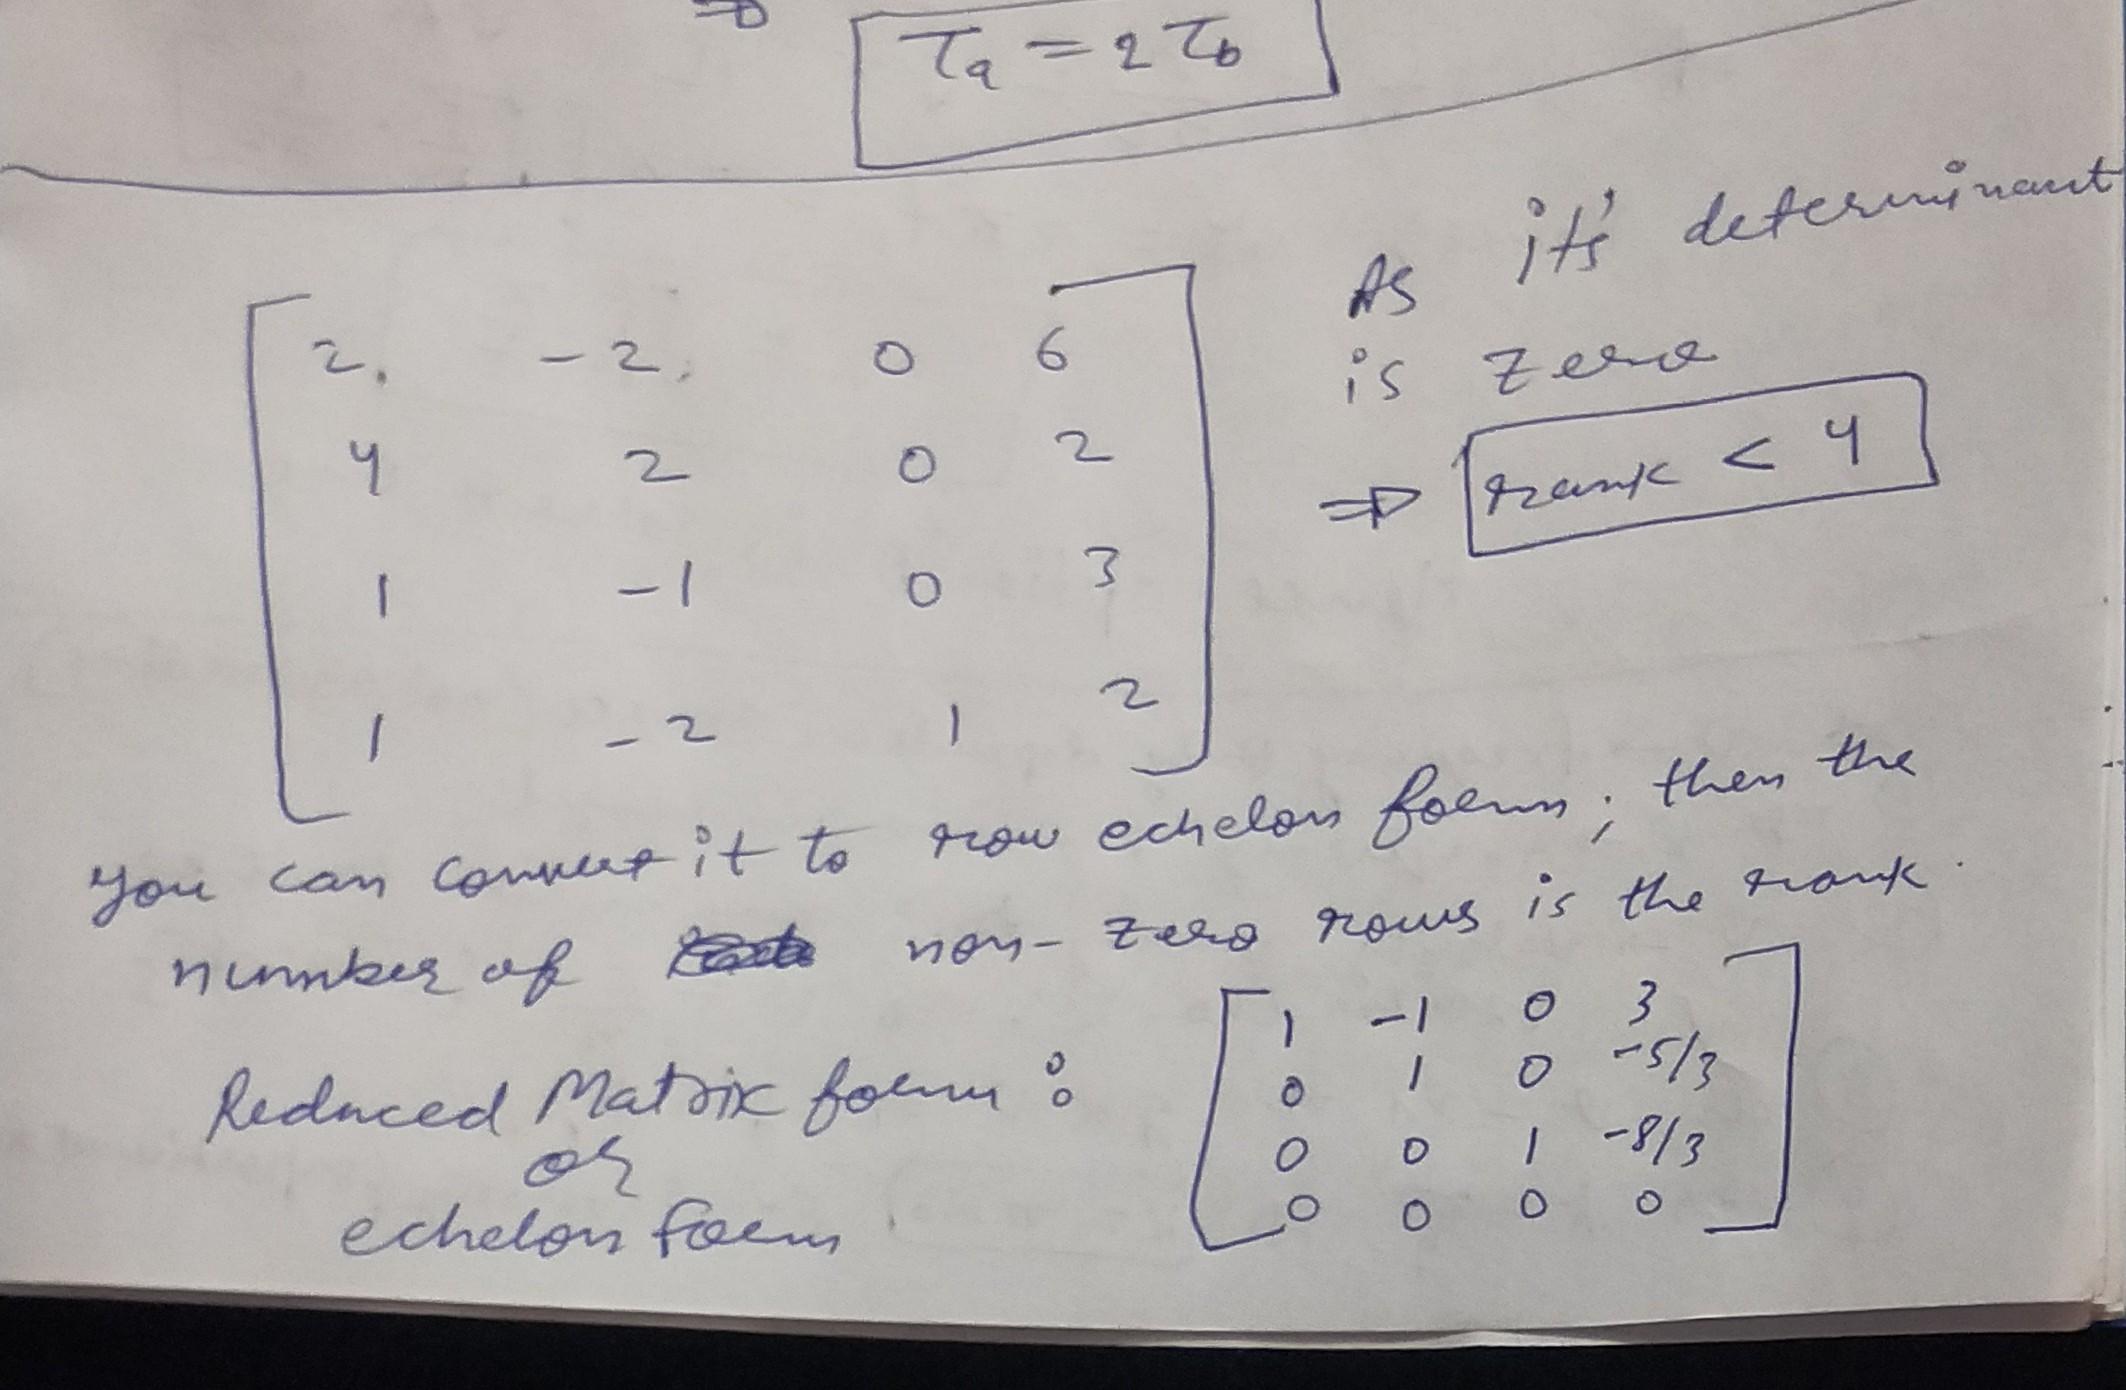 ⇒ τa = 2 τb
2. -2. 0 6
4 2 0 2
1 -1 0 3
1 -2 1 2
As it's determinant
is zero
⇒ rank < 4
you can convert it to row echelon form; then the
number of non-zero rows is the rank.
Reduced Matrix form :
or
echelon form
1 -1 0 3
0 1 0 -5/3
0 0 1 -8/3
0 0 0 0